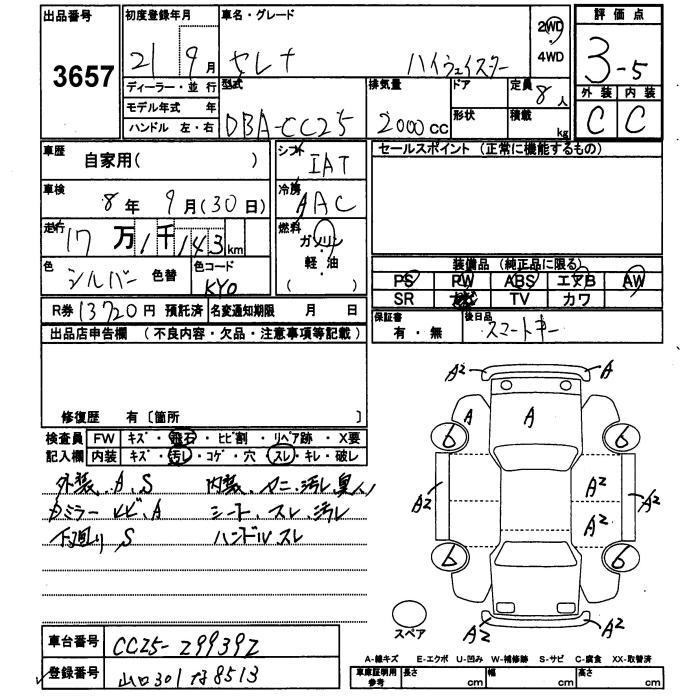 出品番号
3657
初度登録年月
21 9月
ディーラー・並行
モデル年式 年
ハンドル 左・右
車名・グレード
セレナ ハイウェイスター
2WD
4WD
評価点
3-5
外装 内装
C C
型式
DBA-CC25
排気量
2000cc
ドア
形状
定員 8人
積載 kg
車歴
自家用( )
車検
8年 9月(30日)
走行
17万1千143km
色
シルバー 色替
色コード
KY0
シフト
IAT
冷房
AAC
燃料
ガソリン
軽・油
( )
セールスポイント (正常に機能するもの)
装備品 (純正品に限る)
PS PW ABS エアB AW
SR ナビ TV カワ
保証書
有・無
後日品
スマートキー
R券 13720円 預託済 名変通知期限 月 日
出品店申告欄 (不良内容・欠品・注意事項等記載)
修復歴 有〔箇所 〕
検査員 FW キズ・飛石・ヒビ割・リペア跡・X要
記入欄 内装 キズ・汚レ・コゲ・穴・スレ・キレ・破レ
外装、A、S 内装、マニ、汚レ
ミラーヒビ、A シート、スレ、汚レ
下廻り S ハンドルスレ
A2 A
A A
6 6
A2 A2 A2
A2
6 6
A2 A2
スペア
車台番号
CC25-299392
登録番号
山口301 な8513
A-線キズ E-エクボ U-凹み W-補修跡 S-サビ C-腐食 XX-取替済
車庫証明用
参考
長さ cm 幅 cm 高さ cm